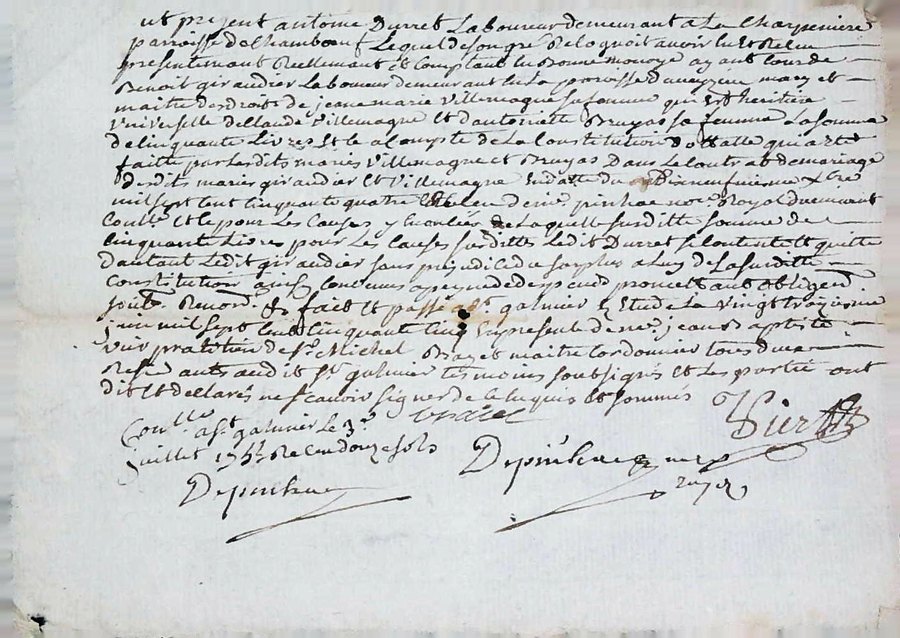 ut present antoine Durret Laboureur demeurant a La Charpeniere
parroisse de Chambœuf Lequel de son gré Recognoit avoir lu Et Recu
presentemant Reellemant Et Comptant En Bonne monoye ayant Cour de
Benoit giraudier Laboureur demeurant En La parroisse mary et
maitre des droits de jeane marie Villemagne Sa femme qui Est heritiere
Universelle de Claude Villemagne Et d'antoinette Bruyas Sa femme La Somme
de Cinquante Livres Et Ce a Compte de La Constitution dottalle qui a eté
faitte par Lesdits mariés Villemagne et Bruyas Dans Le Contrat de mariage
desdits mariés giraudier Et Villemagne En datte du
mil sept Cent Cinquante quatre de me pinhac nore Royal
Conlle Et Ce pour Les Causes y Enoncées de Laquelle susditte Somme de
Cinquante Livres pour Les Causes susdittes Ledit Durret Se Contente Et quitte
d'autant Ledit giraudier Sans prejudice du Surplus a Luy de La Susditte
Constitution ainsy Convenues a peyne de despend promettant obligend
Soub. Renond. &c fait Et passé a St galmier En Etude Le Vingt troizieme
juin mil sept Cent Cinquante Cinq En presence de me jean Baptiste
Vier praticien de St Michel et maitre Cordonnier tous deux
audit St galmier temoins Soubsignés Et Les partie ont
dit Et declarés ne scavoir signer de Ce Enquis Et Sommés
Vier
Conlle a St galmier Le 3e
juillet 1755 Recu douze sols
Depinhac
Depinhac